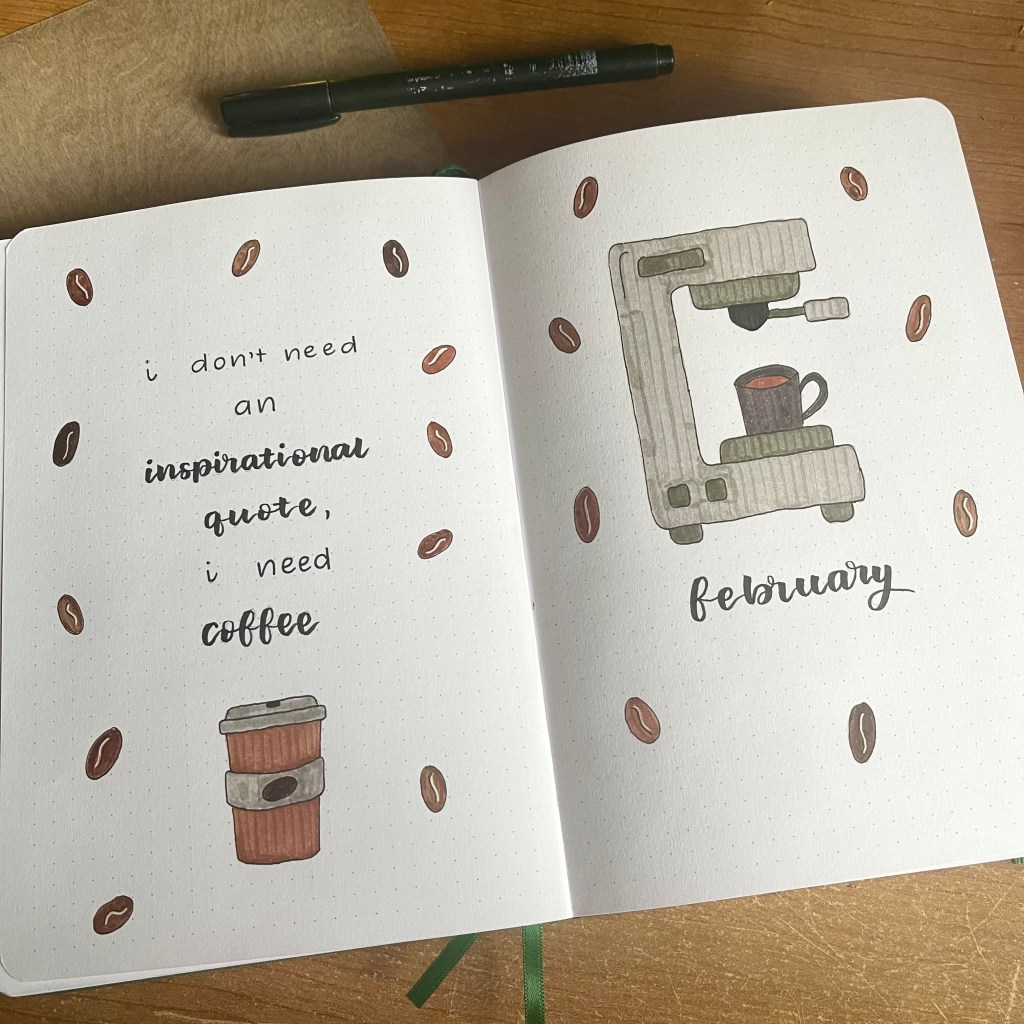 i don't need
an
inspirational
quote,
i need
coffee
february